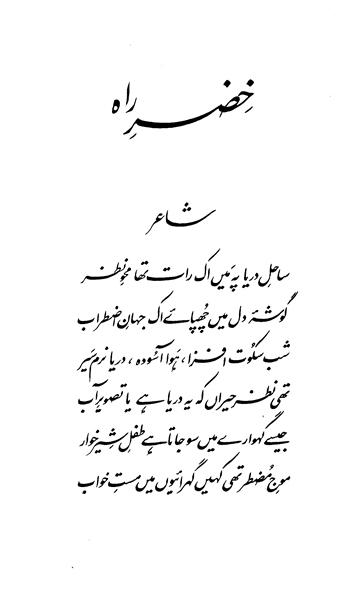 خِضرِ راہ
شاعر
ساحلِ دریا پہ مَیں اک رات تھا محوِ نظر
گوشۂ دل میں چھُپائے اک جہانِ اضطراب
شب سکُوت افزا، ہَوا آسُودہ، دریا نرم سَیر
تھی نظر حیراں کہ یہ دریا ہے یا تصویرِ آب
جیسے گہوارے میں سو جاتا ہے طفلِ شِیرخوار
موجِ مُضطر تھی کہیں گہرائیوں میں مستِ خواب